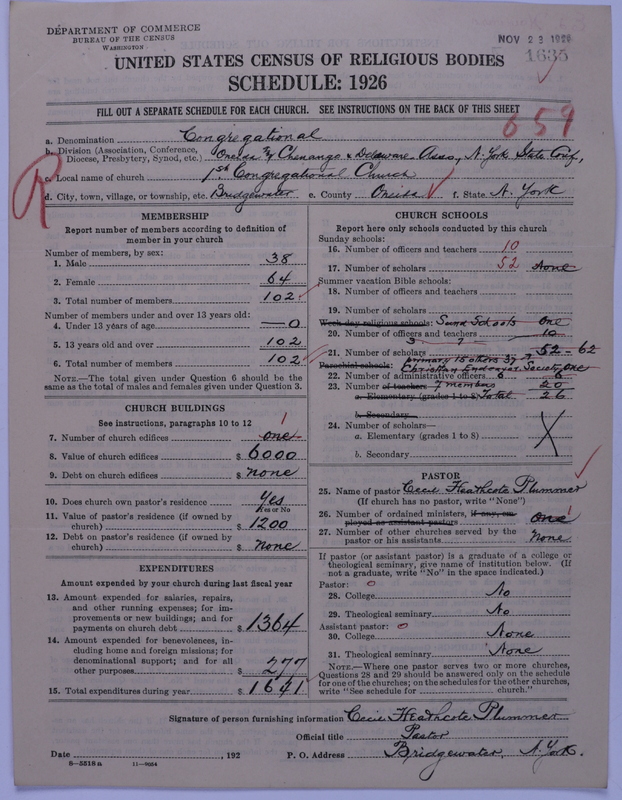 DEPARTMENT OF COMMERCE
BUREAU OF THE CENSUS
WASHINGTON
NOV 23 1926
1635
UNITED STATES CENSUS OF RELIGIOUS BODIES
SCHEDULE: 1926
FILL OUT A SEPARATE SCHEDULE FOR EACH CHURCH. SEE INSTRUCTIONS ON THE BACK OF THIS SHEET
659
R
a. Denomination Congregational
b. Division (Association, Conference, Diocese, Presbytery, Synod, etc.) Oneida Chenango & Delaware Asso, N. York State Conf,
c. Local name of church 1st Congregational Church
d. City, town, village, or township, etc. Bridgewater e. County Oneida f. State N. York
MEMBERSHIP
Report number of members according to definition of
member in your church
Number of members, by sex:
1. Male 38
2. Female 64
3. Total number of members 102
Number of members under and over 13 years old:
4. Under 13 years of age — 0
5. 13 years old and over 102
6. Total number of members 102
NOTE.—The total given under Question 6 should be the
same as the total of males and females given under Question 3.
CHURCH BUILDINGS
See instructions, paragraphs 10 to 12
7. Number of church edifices one 1
8. Value of church edifices $ 6000
9. Debt on church edifices $ none
10. Does church own pastor's residence Yes
Yes or No
11. Value of pastor's residence (if owned by
church) $ 1200
12. Debt on pastor's residence (if owned by
church) $ None
EXPENDITURES
Amount expended by your church during last fiscal year
13. Amount expended for salaries, repairs,
and other running expenses; for im-
provements or new buildings; and for
payments on church debt $ 1364
14. Amount expended for benevolences, in-
cluding home and foreign missions; for
denominational support; and for all
other purposes $ 277
15. Total expenditures during year $ 1641
CHURCH SCHOOLS
Report here only schools conducted by this church
Sunday schools:
16. Number of officers and teachers 10
17. Number of scholars 52 None
Summer vacation Bible schools:
18. Number of officers and teachers
19. Number of scholars
Week-day religious schools: Sund Schools one
20. Number of officers and teachers 10
3 7
21. Number of scholars primary 15 others 37 52 - 62
Parochial schools: Christian Endeavor Society, one
22. Number of administrative officers 6 6
23. Number of teachers 7 members 20
a. Elementary (grades 1 to 8) Total 26
b. Secondary
24. Number of scholars—
a. Elementary (grades 1 to 8)
b. Secondary
PASTOR
25. Name of pastor Cecil Heathcote Plummer
(If church has no pastor, write "None")
26. Number of ordained ministers, if any, em-
ployed as assistant pastors One 1
27. Number of other churches served by the
pastor or his assistants None
If pastor (or assistant pastor) is a graduate of a college or
theological seminary, give name of institution below. (If
not a graduate, write "No" in the space indicated.)
Pastor: 0
28. College No
29. Theological seminary No
Assistant pastor: 0
30. College None
31. Theological seminary None
NOTE.—Where one pastor serves two or more churches,
Questions 28 and 29 should be answered only on the schedule
for one of the churches; on the schedules for the other churches,
write "See schedule for church."
Signature of person furnishing information Cecil Heathcote Plummer
Official title Pastor
Date , 192 P. O. Address Bridgewater, N. York.
8—5518 a 11—9054